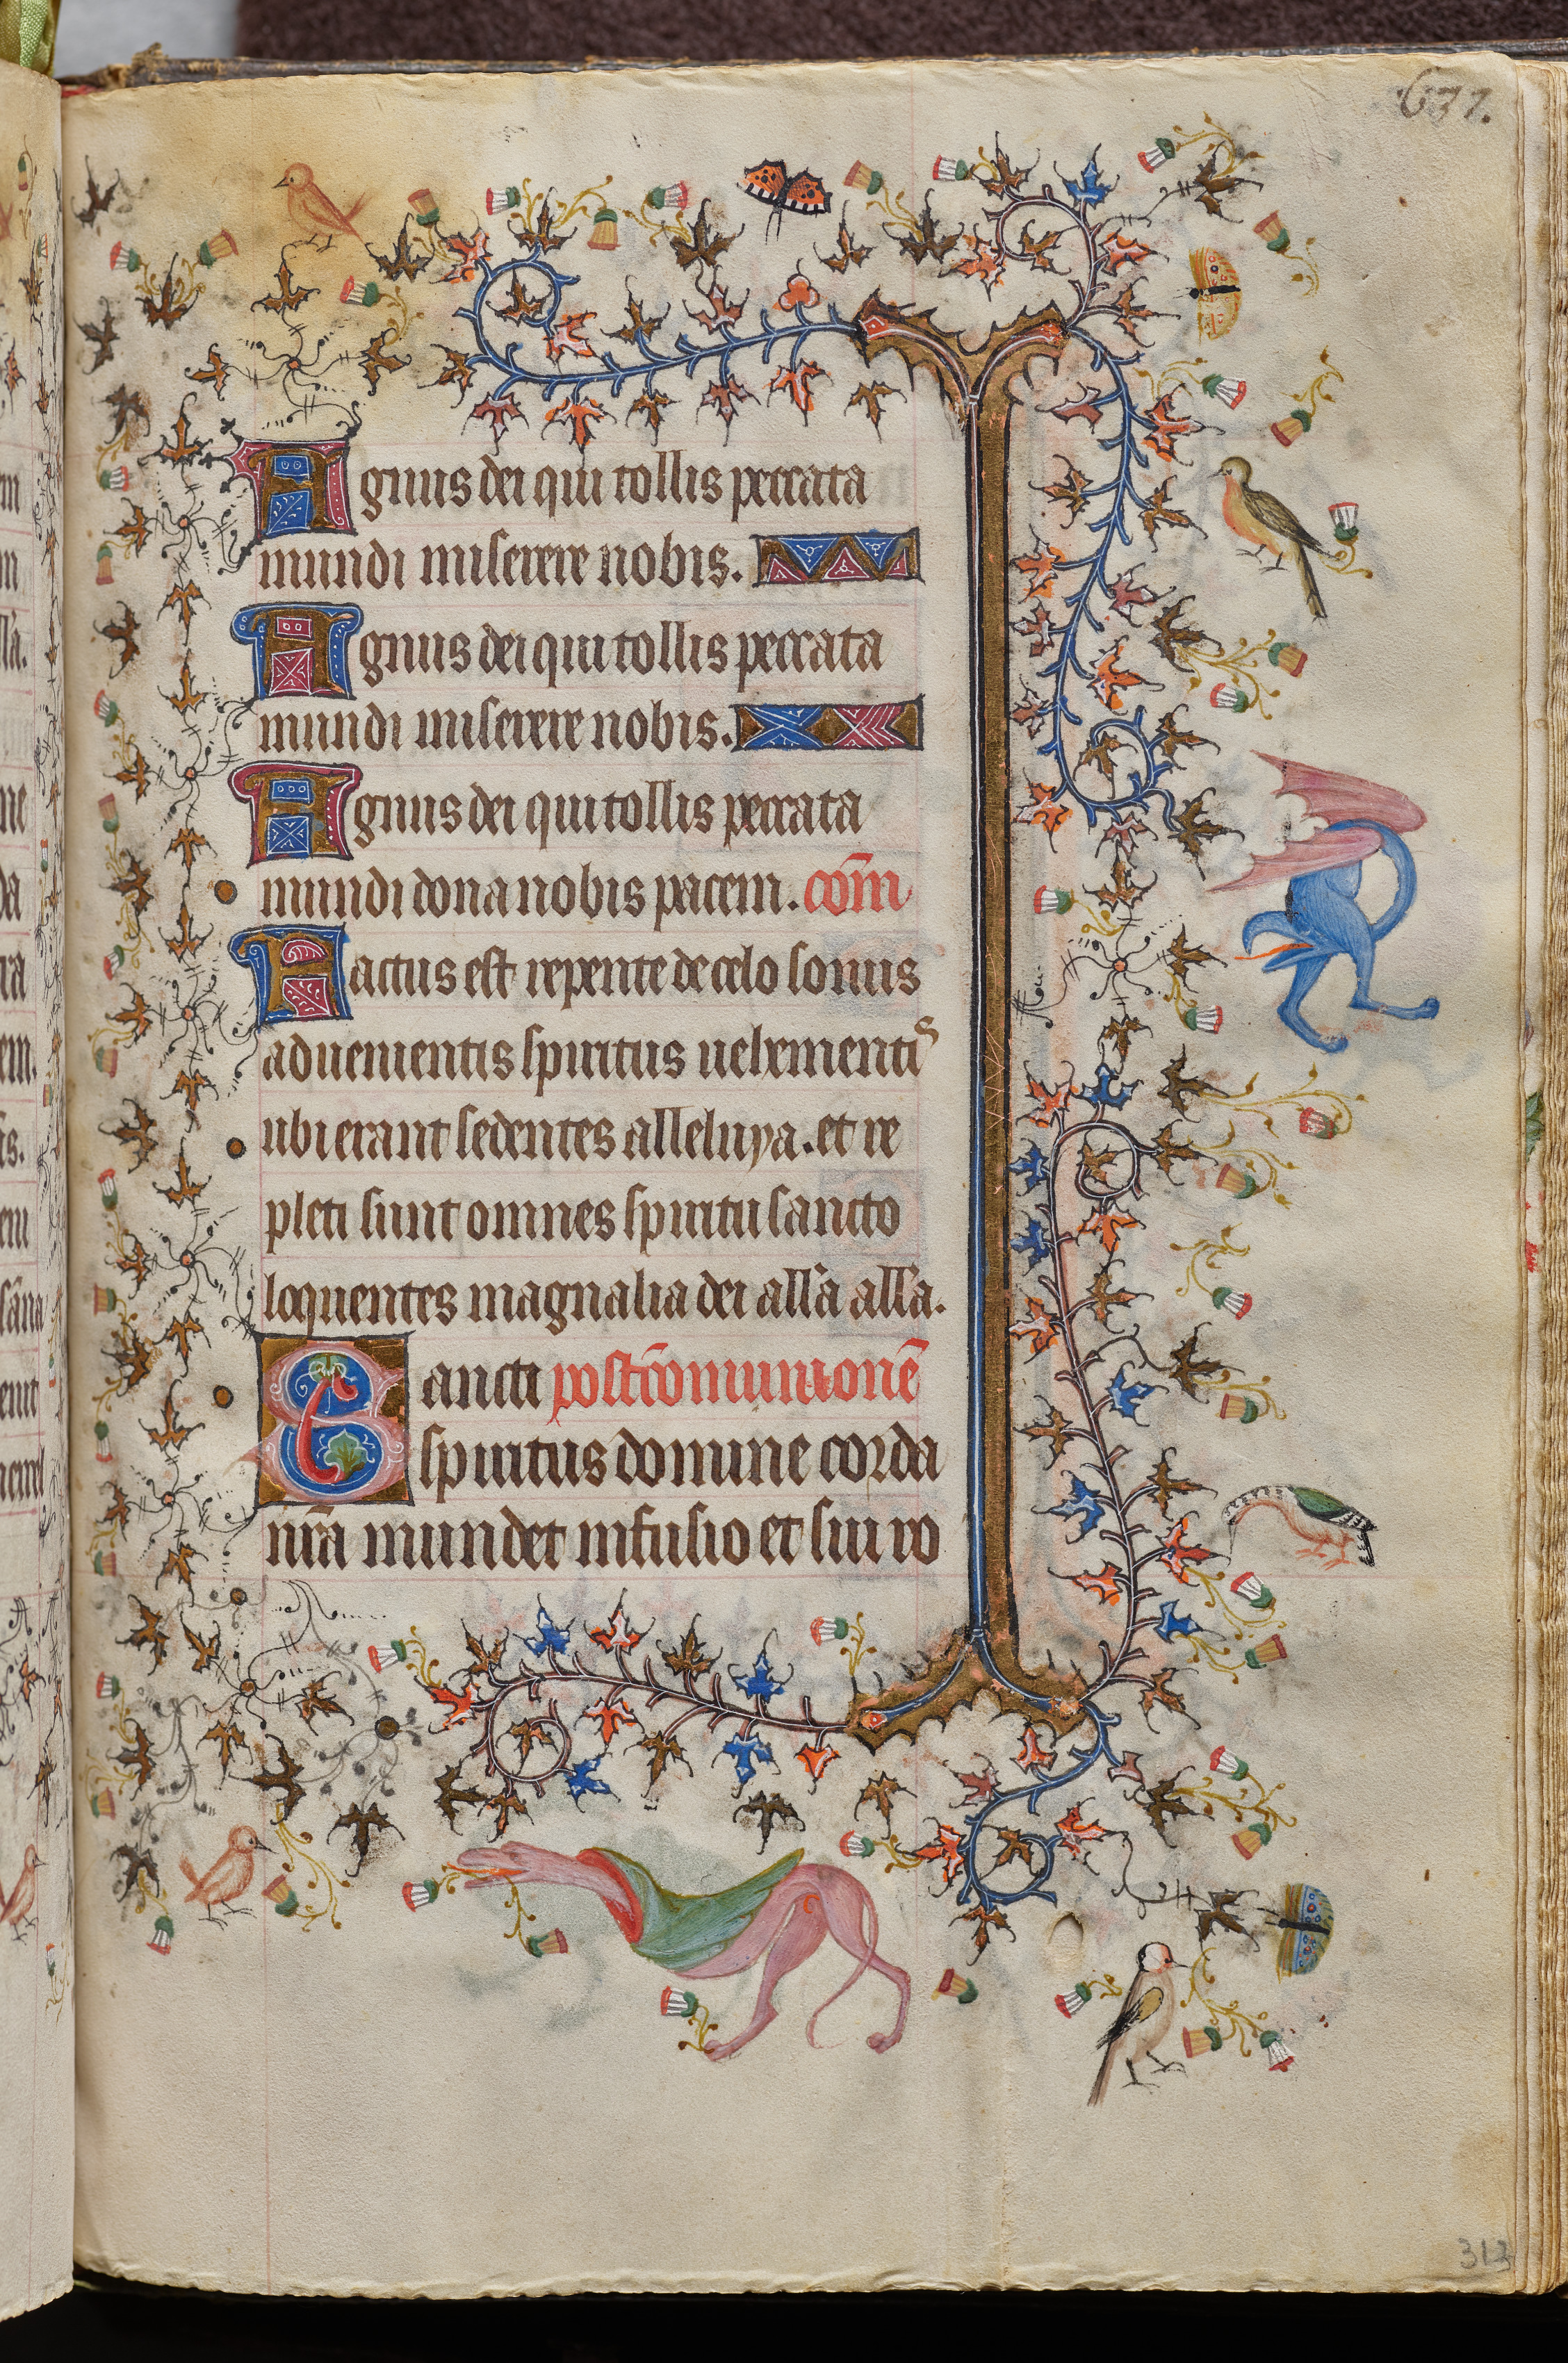 637.
Agnus dei qui tollis peccata
mundi miserere nobis.
Agnus dei qui tollis peccata
mundi miserere nobis.
Agnus dei qui tollis peccata
mundi dona nobis pacem. com̄
Factus est repente de celo sonus
aduenientis spiritus uehementis
ubi erant sedentes alleluya. et re
pleti sunt omnes spiritu sancto
loquentes magnalia dei all'a all'a.
Sancti postcōmunionē
spiritus domine corda
nr̄a mundet infusio et sui ro
313